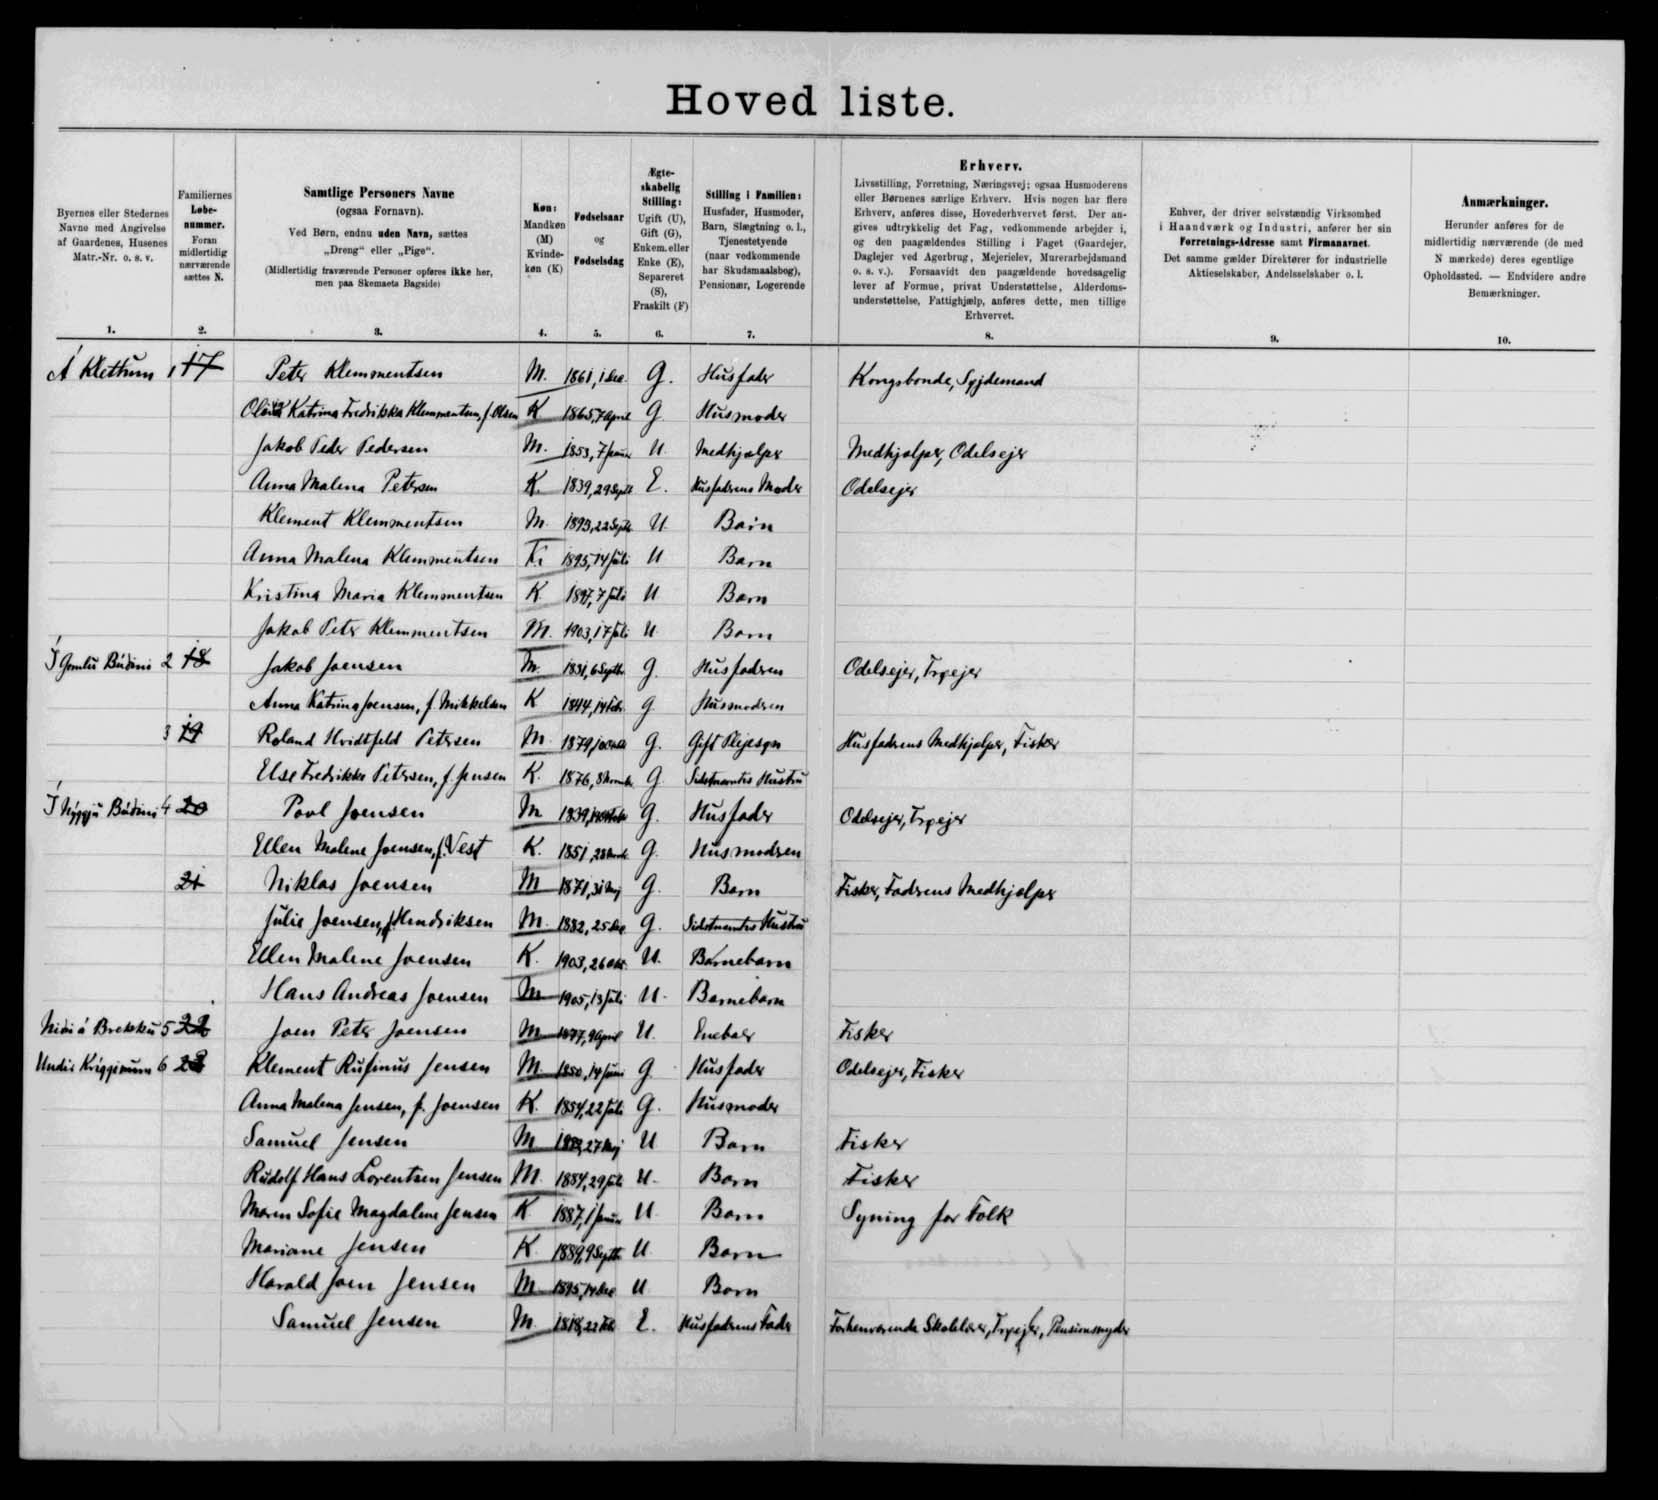 Hoved liste.
Byernes eller Stedernes Navne med Angivelse af Gaardenes, Husenes Matr.-Nr. o. s. v.
Familiernes Løbenummer. Foran midlertidig nærværende sættes N.
Samtlige Personers Navne
(ogsaa Fornavn).
Ved Børn, endnu uden Navn, sættes „Dreng“ eller „Pige“.
(Midlertidig fraværende Personer opføres ikke her, men paa Skemaets Bagside)
Køn: Mandkøn (M) Kvindekøn (K)
Fødselsaar og Fødselsdag
Ægteskabelig Stilling: Ugift (U), Gift (G), Enkem. eller Enke (E), Separeret (S), Fraskilt (F)
Stilling i Familien: Husfader, Husmoder, Barn, Slægtning o. l., Tjenestetyende (naar vedkommende har Skudsmaalsbog), Pensionær, Logerende
Erhverv.
Livsstilling, Forretning, Næringsvej; ogsaa Husmoderens eller Børnenes særlige Erhverv. Hvis nogen har flere Erhverv, anføres disse, Hovederhvervet først. Der angives udtrykkelig det Fag, vedkommende arbejder i, og den paagældendes Stilling i Faget (Gaardejer, Daglejer ved Agerbrug, Mejerielev, Murerarbejdsmand o. s. v.). Forsaavidt den paagældende hovedsagelig lever af Formue, privat Understøttelse, Alderdomsunderstøttelse, Fattighjælp, anføres dette, men tillige Erhvervet.
Enhver, der driver selvstændig Virksomhed i Haandværk og Industri, anfører her sin Forretnings-Adresse samt Firmanavnet. Det samme gælder Direktører for industrielle Aktieselskaber, Andelsselskaber o. l.
Anmærkninger.
Herunder anføres for de midlertidig nærværende (de med N mærkede) deres egentlige Opholdssted. — Endvidere andre Bemærkninger.
1. 2. 3. 4. 5. 6. 7. 8. 9. 10.
Á Klettum 1 17 Peter Klemmentsen M. 1861, 1 Dec. G. Husfader Kongsbonde, Syjdemand
Katrina Fredrikka Klemmentsen, f. Olsen K 1865, 7 April G. Husmoder
Jakob Peder Pedersen M. 1853, 7 Januar U. Medhjælper Medhjælper, Odelsejer
Anna Malena Petersen K. 1839, 29 Septb E. Husfaderens Moder Odelsejer
Klement Klemmentsen M. 1893, 22 Septb U. Barn
Anna Malena Klemmentsen K. 1895, 14 Juli U Barn
Kristina Maria Klemmentsen K 1897, 7 Juli U Barn
Jakob Peter Klemmentsen M. 1903, 17 Juli U. Barn
Í Gomlu Búðini 2 18 Jakob Joensen M. 1831, 6 Septb. G. Husfaderen Odelsejer, Trøejer
Anna Katrina Joensen, f. Mikkelsen K 1844, 14 Feb. G Husmoderen
3 19 Roland Hvidtfeld Petersen M. 1879 G. Gift Plejesøn Husfaderens Medhjælper, Fisker
Else Fredrikke Petersen, f. Jensen K. 1876, 8 G. Sidstnævntes Hustru
Í Nýggju Búðini 4 20 Povl Joensen M. 1839 G. Husfader Odelsejer, Trøejer
Ellen Malene Joensen, f. Vest K. 1851, 28 G. Husmoderen
21 Niklas Joensen M 1871, 31 Maj G. Barn Fisker, Faderens Medhjælper
Julie Joensen, f. Hendriksen M. 1882, 25 Dec G. Sidstnævntes Hustru
Ellen Malene Joensen K. 1903, 26 Okt. U. Barnebarn
Hans Andreas Joensen M 1905, 13 Juli U. Barnebarn
Niðri á Brekku 5 22 Joen Peter Joensen M. 1877, 9 April U. Eneboer Fisker
Undir 6 23 Klement Rufinus Jensen M. 1850, 14 Juni G Husfader Odelsejer, Fisker
Anna Malena Jensen, f. Joensen K. 1854, 22 Juli G. Husmoder
Samuel Jensen M. 27 Maj U Barn Fisker
Rudolf Hans Lorentsen Jensen M. 1884, 29 Juli U. Barn Fisker
Maren Sofie Magdalene Jensen K 1887, 1 Januar U. Barn Syning for Folk
Mariane Jensen K. 1889, 9 Septb. U. Barn
Harald Joen Jensen M. 1895, 14 Dec U. Barn
Samuel Jensen M. 1818, 22 Feb E. Husfaderens Fader Forhenværende Skolelærer, Trøejer, Pensionsnyder